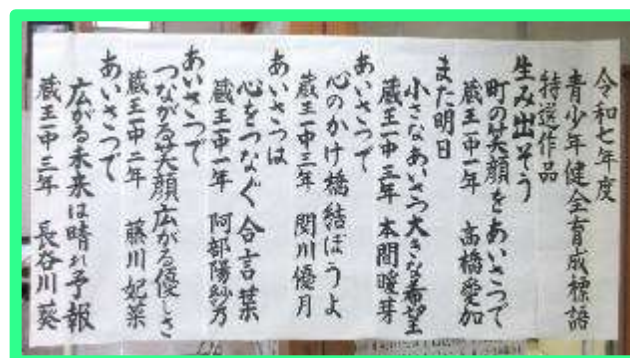 令和七年度
青少年健全育成標語
特選作品
生み出そう
町の笑顔をあいさつで
蔵王一中一年 高橋愛加
また明日
小さなあいさつ大きな希望
蔵王一中三年 本間暖芽
あいさつで
心のかけ橋結ぼうよ
蔵王一中三年 関川優月
あいさつは
心をつなぐ合言葉
蔵王一中一年 阿部陽紗乃
あいさつで
つながる笑顔広がる優しさ
蔵王一中二年 藤川妃菜
あいさつで
広がる未来は晴れ予報
蔵王一中三年 長谷川葵